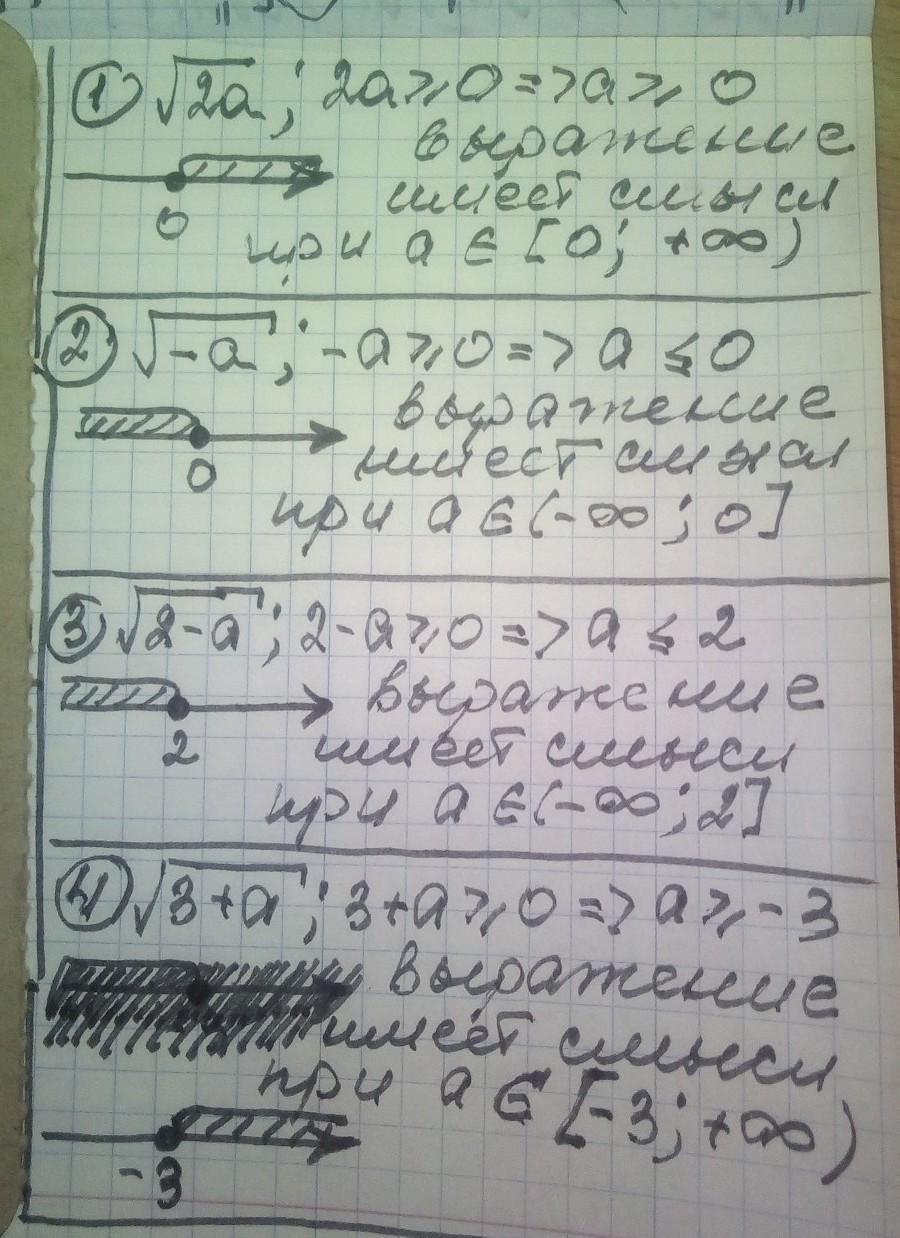 1 √2a; 2a⩾0 => a⩾0
выражение
0 имеет смысл
при a ∈ [0; +∞)
2 √-a; -a⩾0 => a ⩽ 0
выражение
0 имеет смысл
при a ∈ (-∞; 0]
3 √2-a; 2-a⩾0 => a ⩽ 2
выражение
2 имеет смысл
при a ∈ (-∞; 2]
4 √3+a; 3+a⩾0 => a⩾-3
выражение
имеет смысл
при a ∈ [-3; +∞)
-3